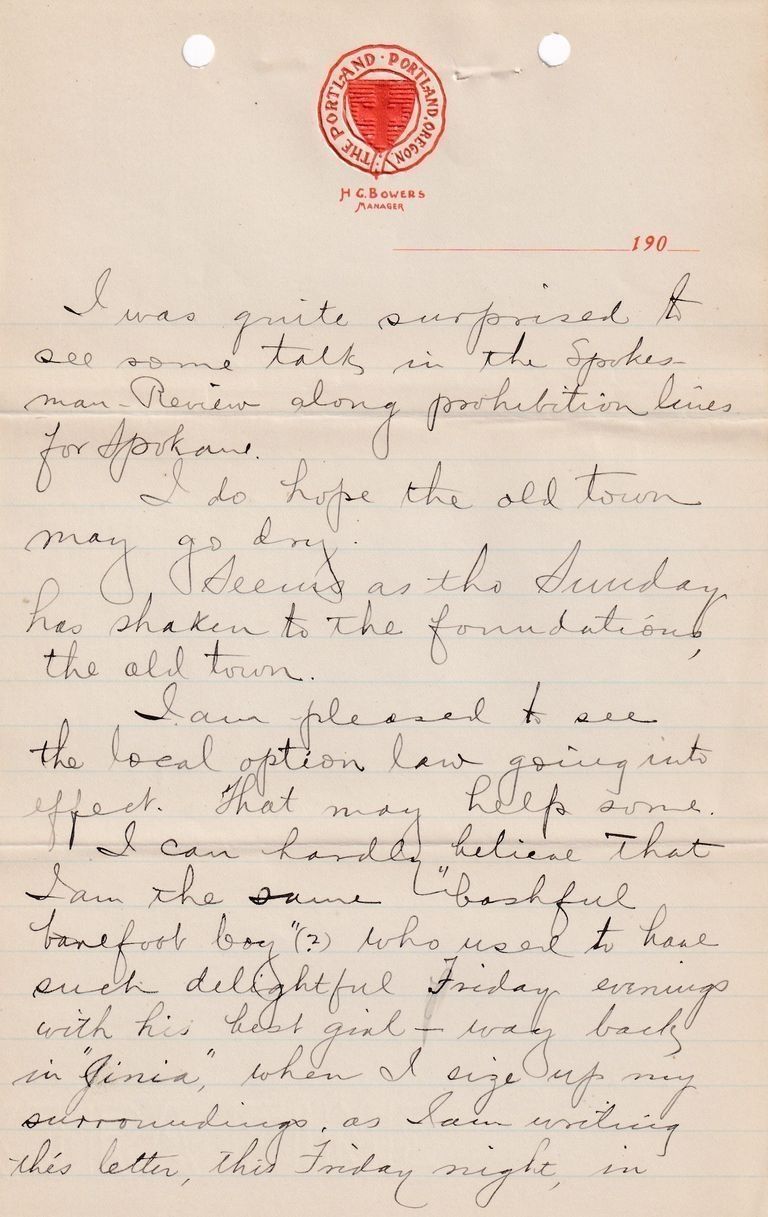 THE PORTLAND · PORTLAND, OREGON,
H C. BOWERS
MANAGER
190
I was quite surprised to
see some talk in the Spokes-
man-Review along prohibition lines
for Spokane.
I do hope the old town
may go dry.
Seems as tho Sunday
has shaken to the foundations,
the old town.
I am pleased to see
the local option law going into
effect. That may help some.
I can hardly believe that
I am the same "bashful
barefoot boy"(?) who used to have
such delightful Friday evenings
with his best girl — way back
in "Jinia", when I size up my
surroundings, as I am writing
this letter, this Friday night, in